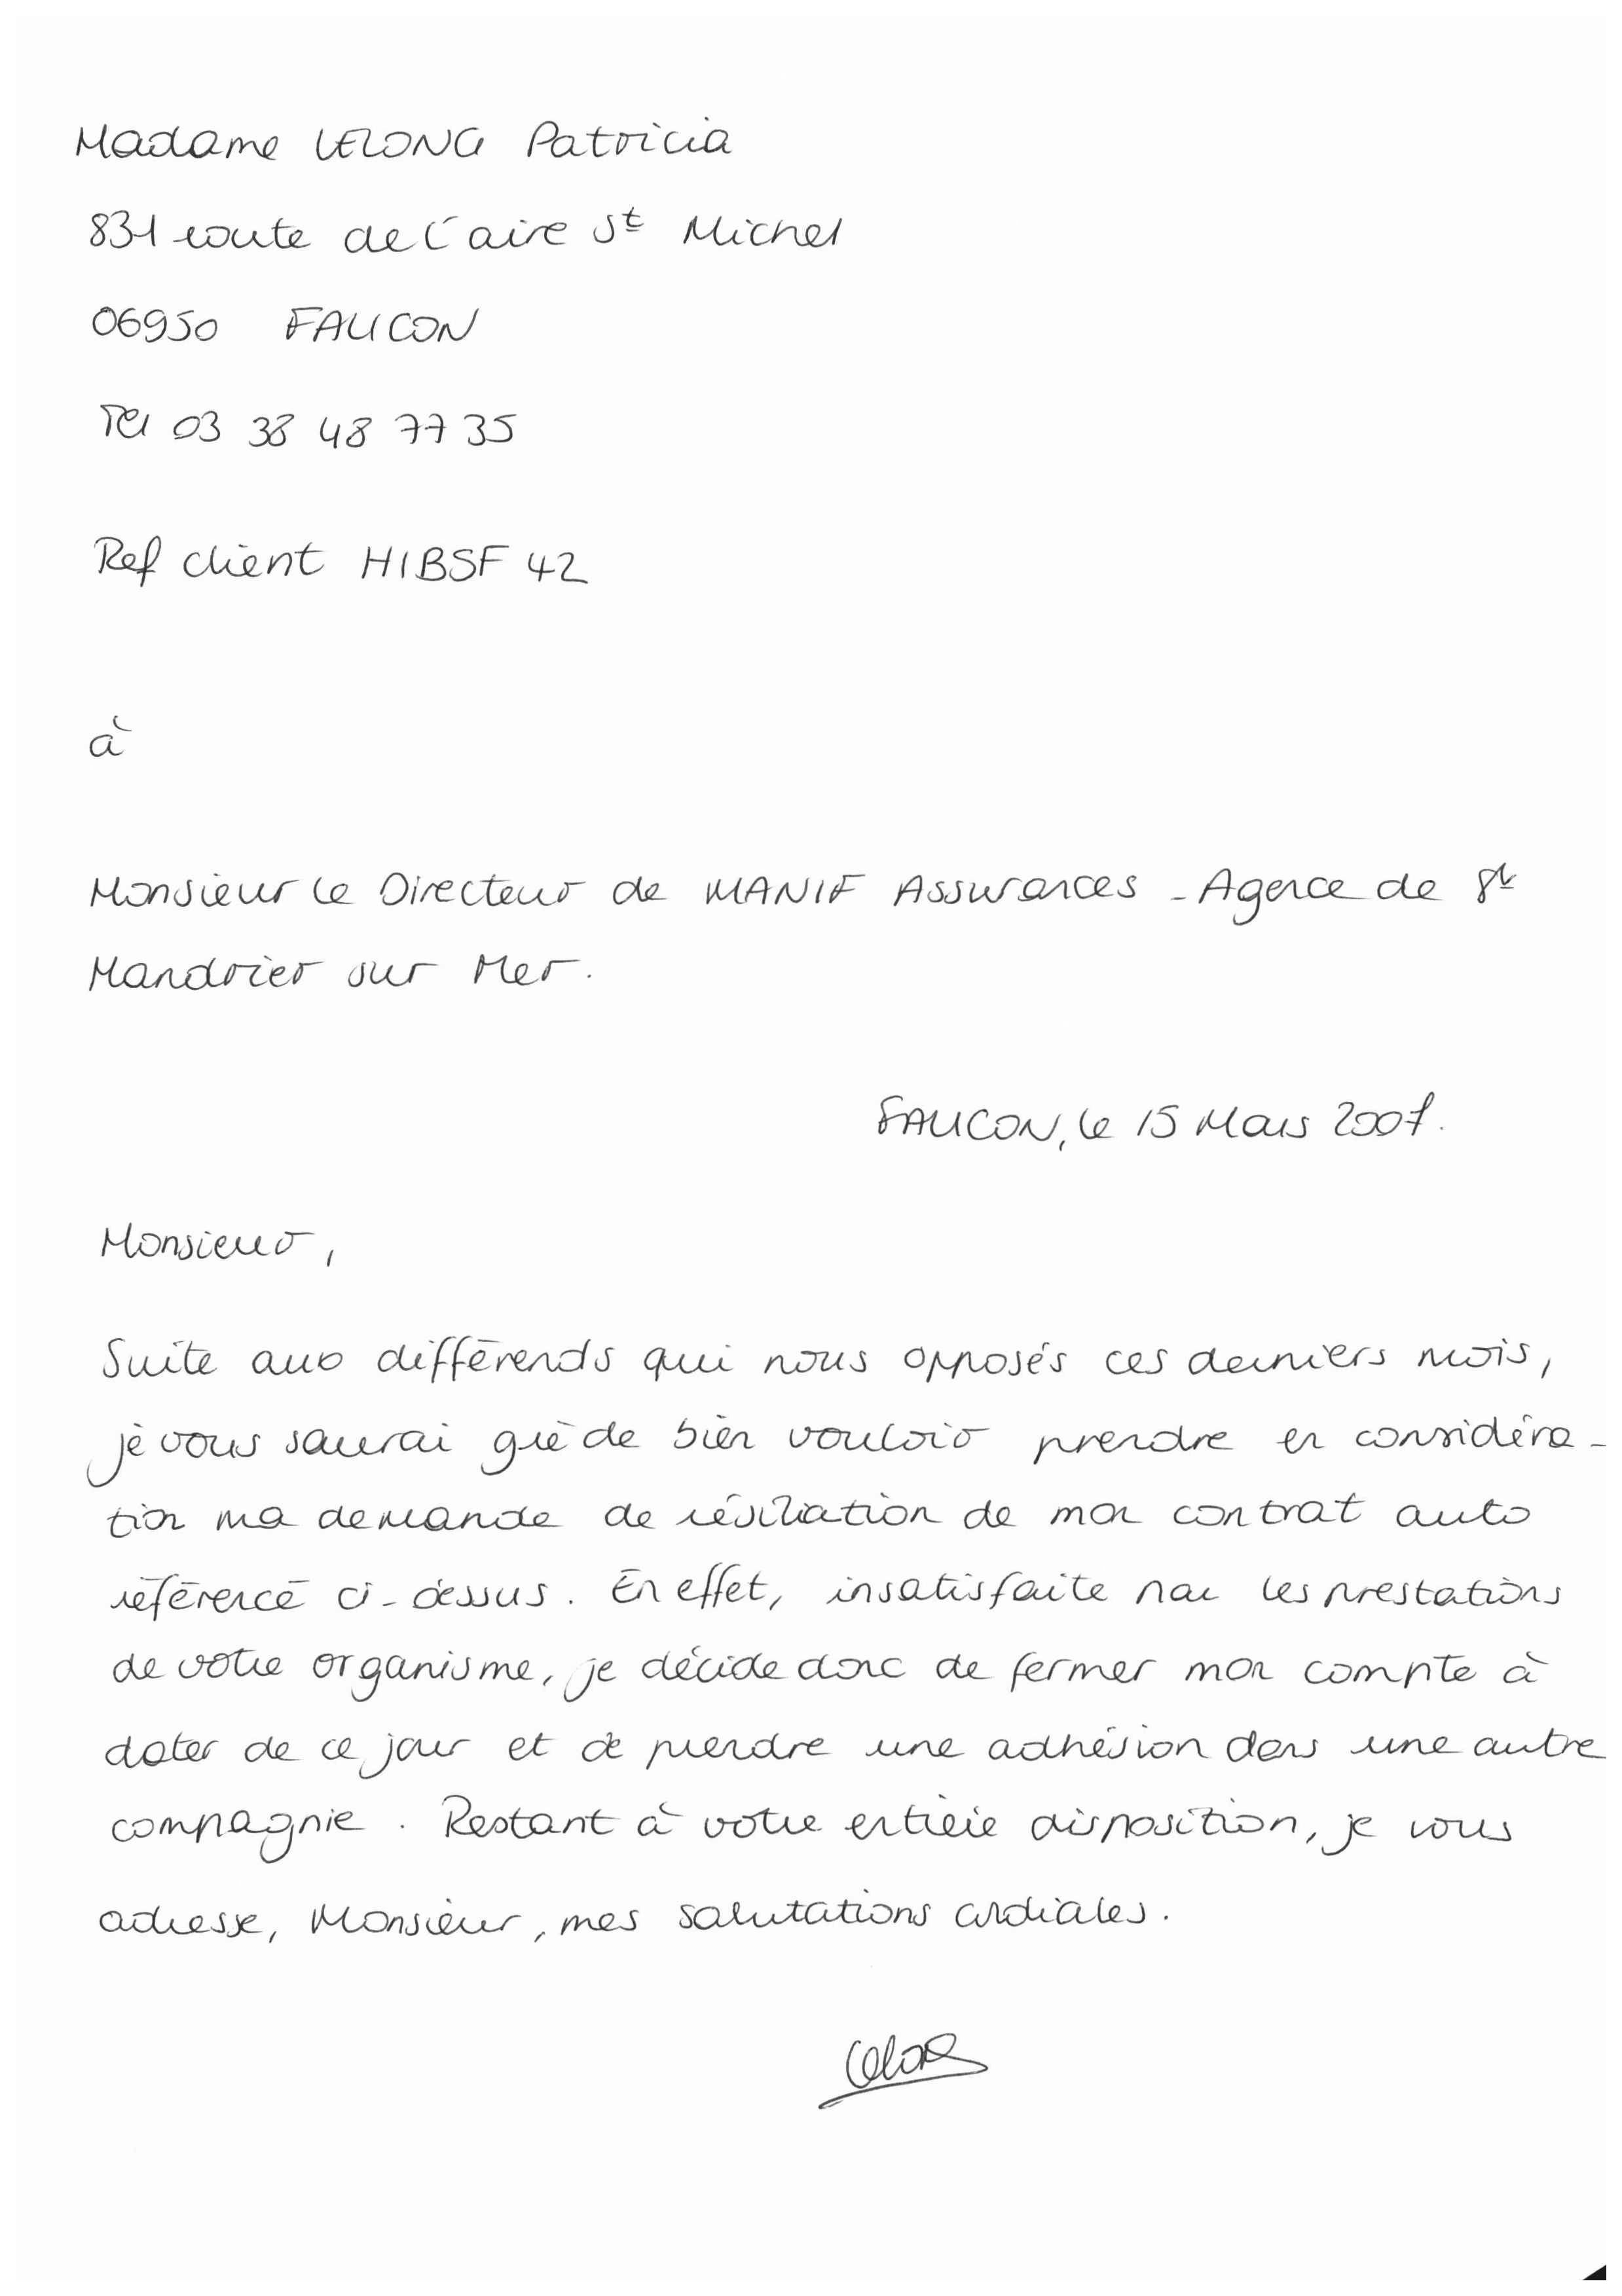 Madame LELONG Patricia
831 route de l'aire St Michel
06950 FAUCON
Tel 03 38 48 77 35
Ref client HIBSF 42
à
Monsieur le Directeur de MANIF Assurances - Agence de St
Mandrier sur Mer.
FAUCON, le 15 Mars 2007.
Monsieur,
Suite aux différends qui nous opposés ces derniers mois,
je vous saurai gré de bien vouloir prendre en considéra-
tion ma demande de résiliation de mon contrat auto
référencé ci-dessus. En effet, insatisfaite par les prestations
de votre organisme, je décide donc de fermer mon compte à
dater de ce jour et de prendre une adhésion dans une autre
compagnie. Restant à votre entière disposition, je vous
adresse, Monsieur, mes salutations cordiales.